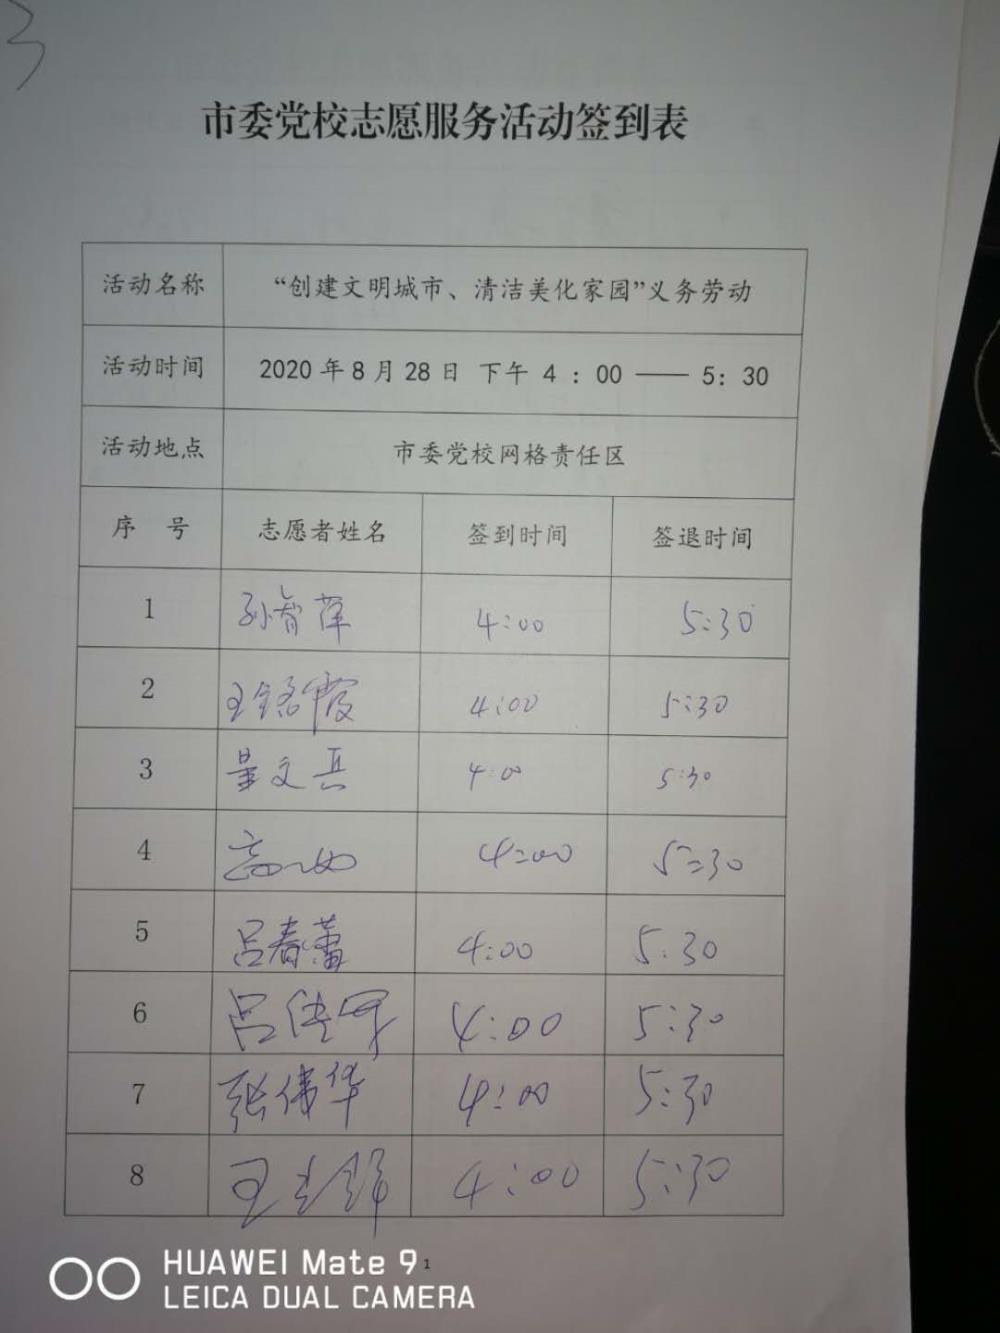 3
市委党校志愿服务活动签到表
活动名称 “创建文明城市、清洁美化家园”义务劳动
活动时间 2020年8月28日 下午 4：00 —— 5：30
活动地点 市委党校网格责任区
序 号 志愿者姓名 签到时间 签退时间
1 孙智萍 4:00 5:30
2 王铭霞 4:00 5:30
3 文兵 4:00 5:30
4 4:00 5:30
5 吕春蕾 4:00 5:30
6 吕 4:00 5:30
7 张伟华 4:00 5:30
8 王 4:00 5:30
HUAWEI Mate 9
1
LEICA DUAL CAMERA